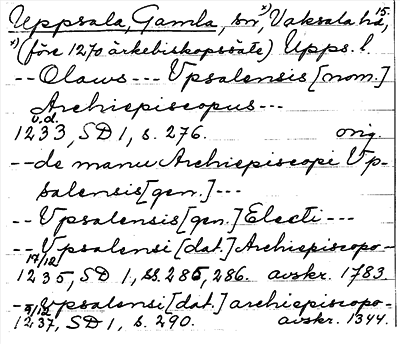 Uppsala, Gamla, sn, ⁾ Vaksala hd, 15.
⁾ (före 1270 ärkebiskopssäte) Upps. l.
-- Olaws --- Vpsalensis [nom.]
Archiepiscopus ---
u.d.
1233, SD 1, s. 276. orig.
-- de manu Archiepiscopi Vp-
salensis [gen.] ---
-- Vpsalensis [gen.] Electi ---
-- Vpsalensi [dat.] Archiepiscopo -
17/12
1235, SD 1, ss. 285, 286. avskr. 1783.
-- Vpsalensi [dat.] archiepiscopo -
5/12
1237, SD 1, s. 290. avskr. 1344.